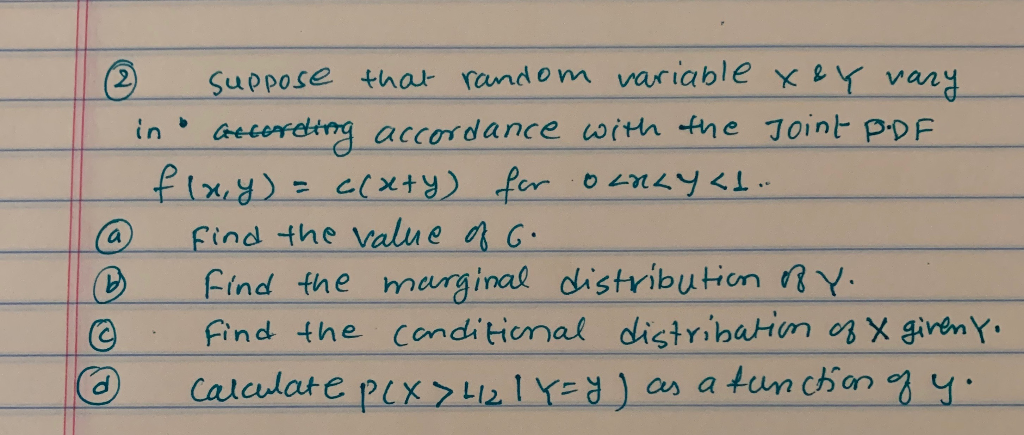 ② Suppose that random variable X & Y vary
in according accordance with the Joint P.DF
f(x,y) = c(x+y) for 0<x<y<1..
ⓐ Find the value of C.
ⓑ Find the marginal distribution of Y.
ⓒ Find the conditional distribation of X given Y.
ⓓ Calculate P(X > 1/2 | Y=y) as a function of y.